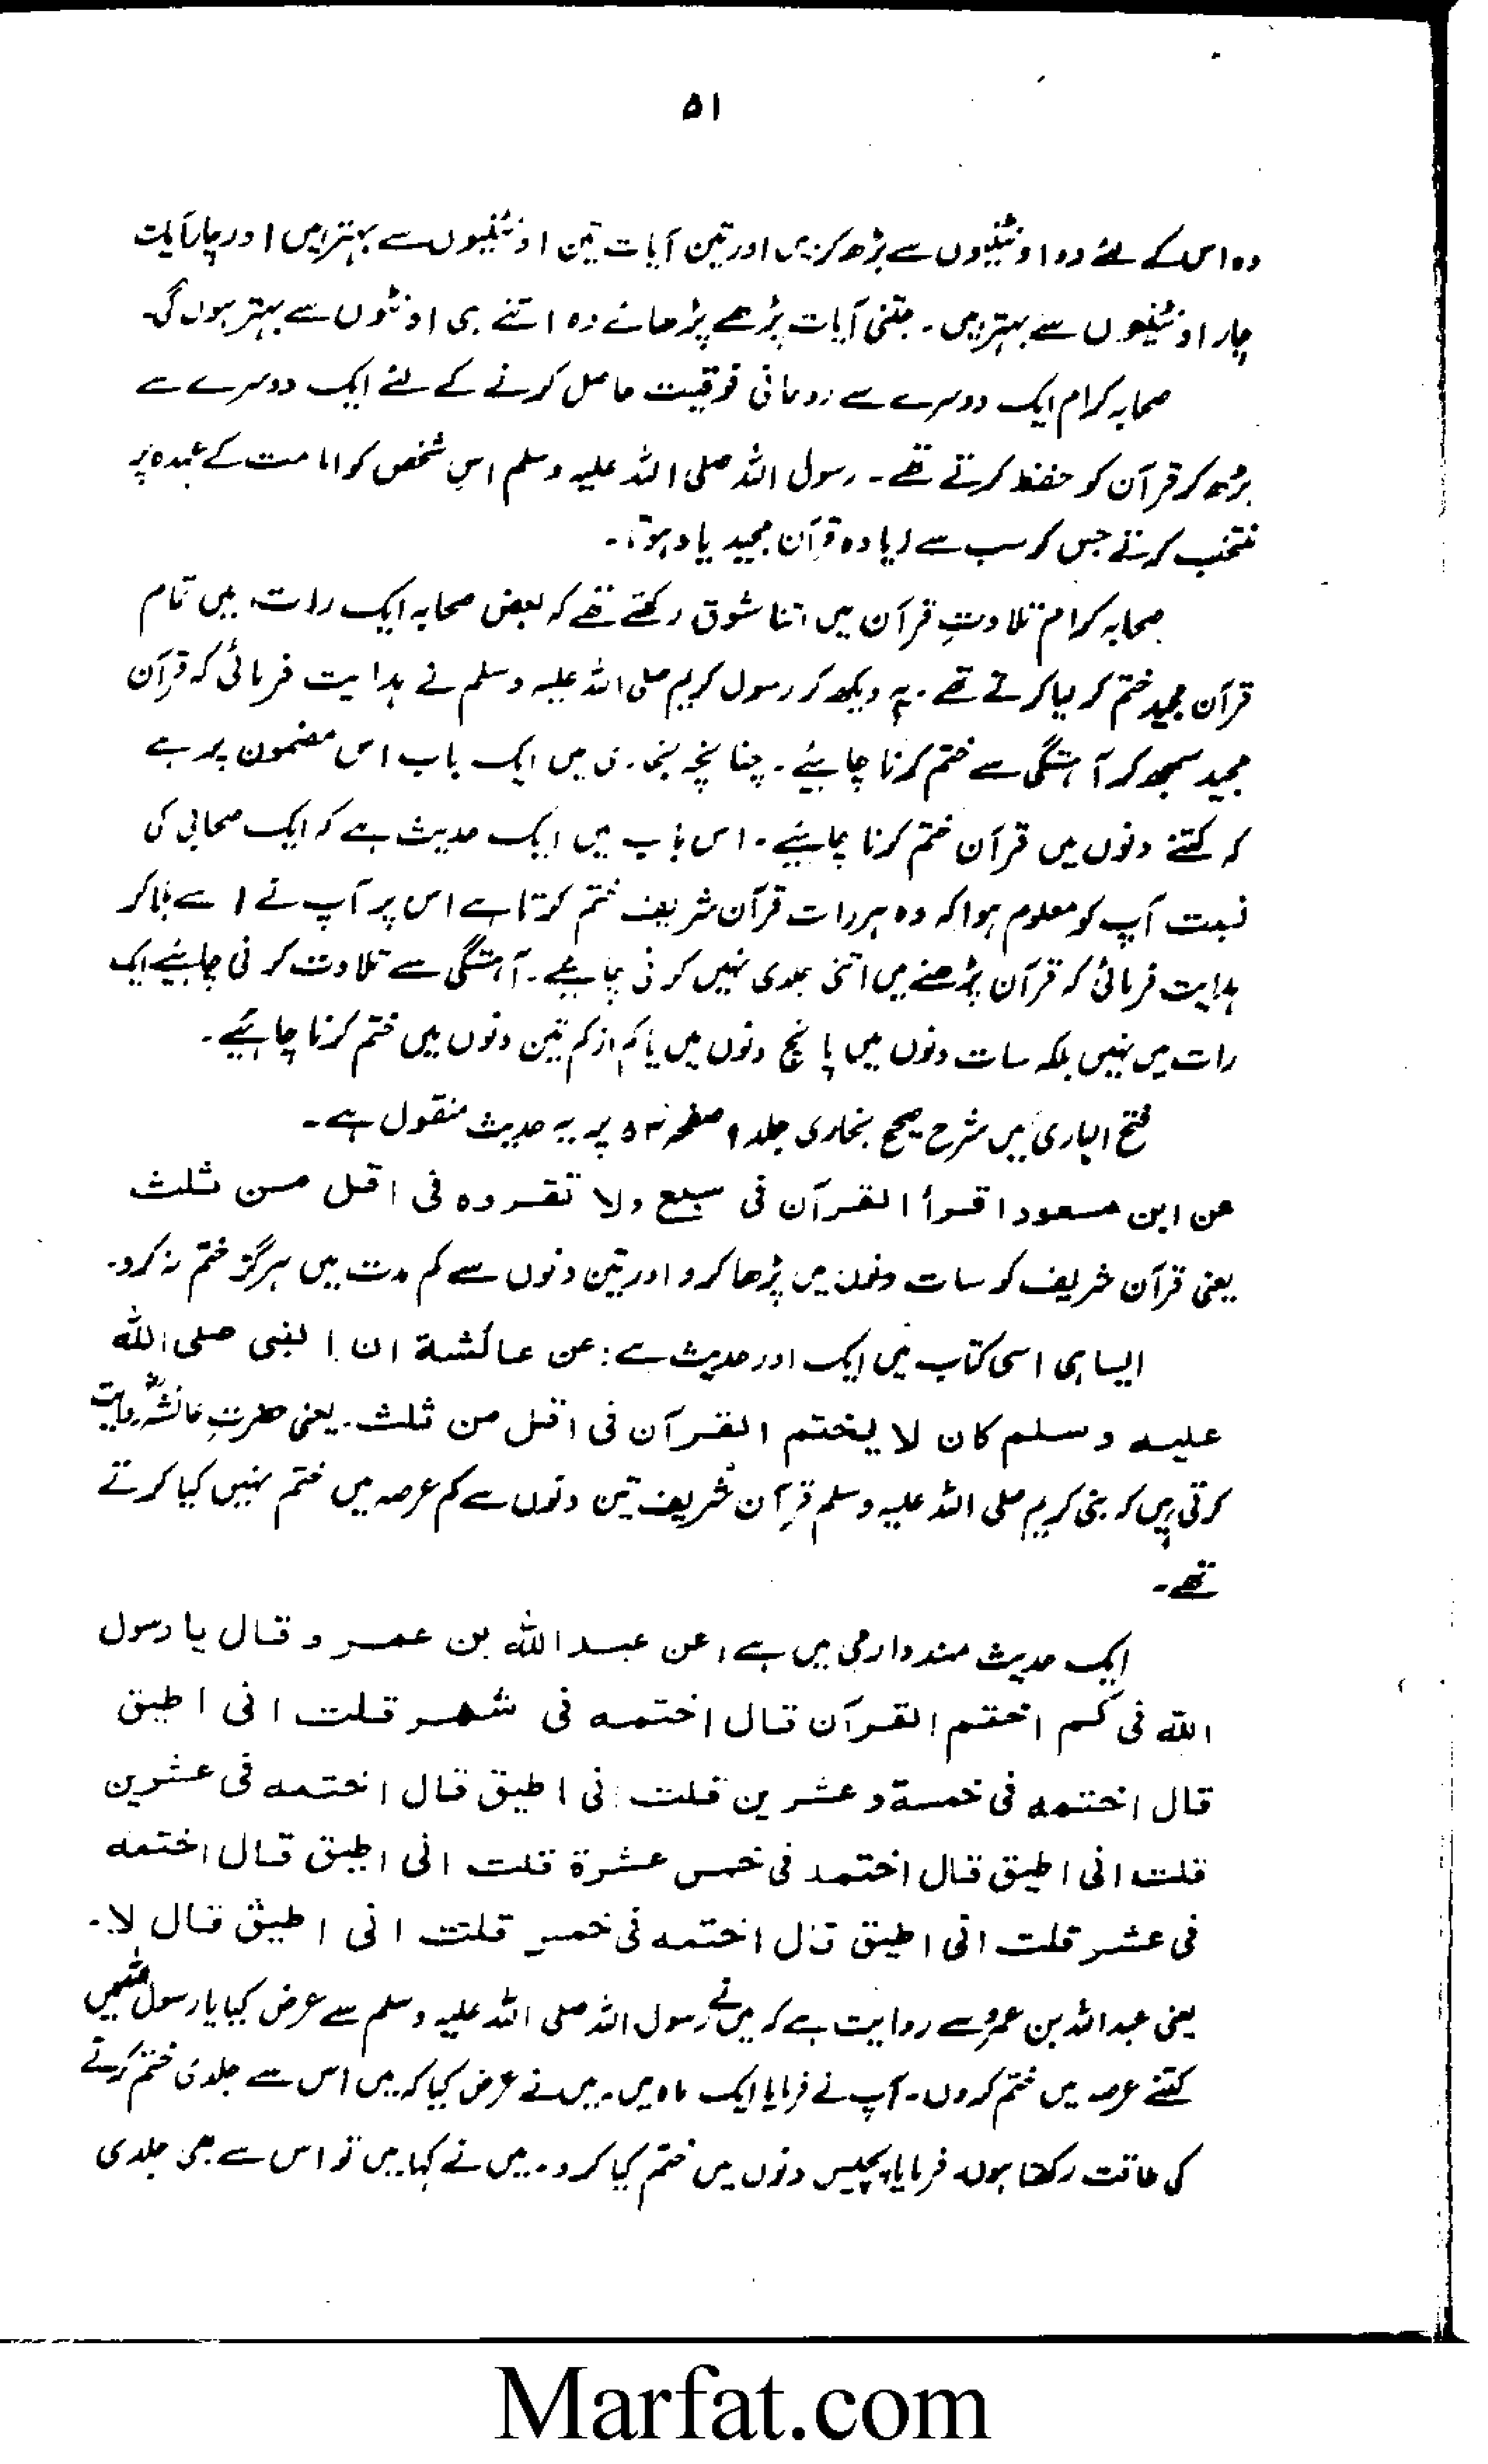 ۵۱
وہ اس کے لئے دو اونٹنیوں سے بڑھ کر ہیں اور تین آیات تین اونٹنیوں سے بہتر ہیں اور چار آیات
چار اونٹنیوں سے بہتر ہیں۔ جتنی آیات پڑھے پڑھائے وہ اتنے ہی اونٹوں سے بہتر ہوں گی۔
صحابہ کرام ایک دوسرے سے روحانی فوقیت حاصل کرنے کے لئے ایک دوسرے سے
بڑھ کر قرآن کو حفظ کرتے تھے۔ رسول اللہ صلی اللہ علیہ وسلم اس شخص کو امامت کے عہدہ پر
منتخب کرتے جس کو سب سے زیادہ قرآن مجید یاد ہوتا۔
صحابہ کرام تلاوتِ قرآن میں اتنا شوق رکھتے تھے کہ بعض صحابہ ایک رات میں تمام
قرآن مجید ختم کر لیا کرتے تھے۔ یہ دیکھ کر رسول کریم صلی اللہ علیہ وسلم نے ہدایت فرمائی کہ قرآن
مجید سمجھ کر آہستگی سے ختم کرنا چاہیئے۔ چنانچہ بخاری میں ایک باب اس مضمون پر ہے
کہ کتنے دنوں میں قرآن ختم کرنا چاہیئے۔ اس باب میں ایک حدیث ہے کہ ایک صحابی کی
نسبت آپ کو معلوم ہوا کہ وہ ہر رات قرآن شریف ختم کرتا ہے اس پر آپ نے اسے بلا کر
ہدایت فرمائی کہ قرآن پڑھنے میں اتنی جلدی نہیں کرنی چاہیئے۔ آہستگی سے تلاوت کرنی چاہیئے ایک
رات میں نہیں بلکہ سات دنوں میں پانچ دنوں میں یا کم از کم تین دنوں میں ختم کرنا چاہیئے۔
فتح الباری میں شرح صحیح بخاری جلد ۹ صفحہ پر یہ حدیث منقول ہے۔
عن ابن مسعود اقرأ القرآن فی سبع ولا تقروہ فی اقل من ثلث
یعنی قرآن شریف کو سات دنوں میں پڑھا کرو اور تین دنوں سے کم مدت میں ہرگز ختم نہ کرو۔
ایسا ہی اسی کتاب میں ایک اور حدیث ہے: عن عائشة ان النبی صلی اللہ
علیہ وسلم کان لا یختم القرآن فی اقل من ثلث۔ یعنی حضرتِ عائشہؓ روایت
کرتی ہیں کہ نبی کریم صلی اللہ علیہ وسلم قرآن شریف تین دنوں سے کم عرصہ میں ختم نہیں کیا کرتے
تھے۔
ایک حدیث مسند دارمی میں ہے، عن عبد اللہ بن عمرو قال یا رسول
اللہ فی کم اختم القرآن قال اختمہ فی شھر قلت انی اطیق
قال اختمہ فی خمسة و عشرین قلت انی اطیق قال اختمہ فی عشرین
قلت انی اطیق قال اختمہ فی خمس عشرة قلت انی اطیق قال اختمہ
فی عشر قلت انی اطیق قال اختمہ فی خمس قلت انی اطیق قال لا۔
یعنی عبداللہ بن عمرو سے روایت ہے کہ میں نے رسول اللہ صلی اللہ علیہ وسلم سے عرض کیا یا رسول اللہ میں
کتنے عرصہ میں ختم کروں۔ آپ نے فرمایا ایک ماہ میں۔ میں نے عرض کیا کہ میں اس سے جلدی ختم کرنے
کی طاقت رکھتا ہوں۔ فرمایا پچیس دنوں میں ختم کیا کرو۔ میں نے کہا میں تو اس سے بھی جلدی
Marfat.com